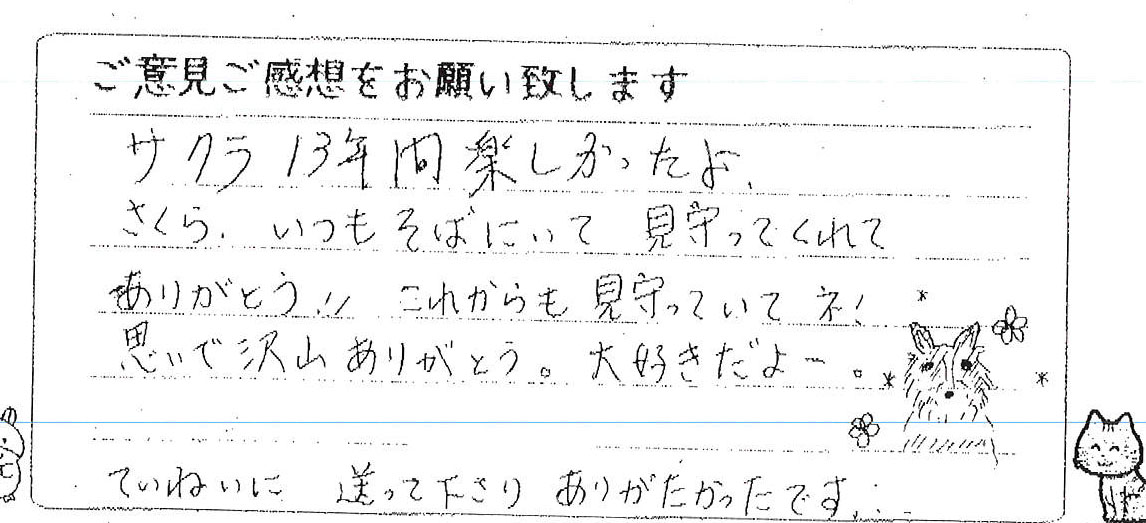 ご意見ご感想をお願い致します
サクラ 13年間楽しかったよ.
さくら. いつもそばにいて 見守ってくれて
ありがとう!! これからも見守っていてネ!
思いで沢山ありがとう。大好きだよー。
ていねいに 送って下さり ありがたかったです.